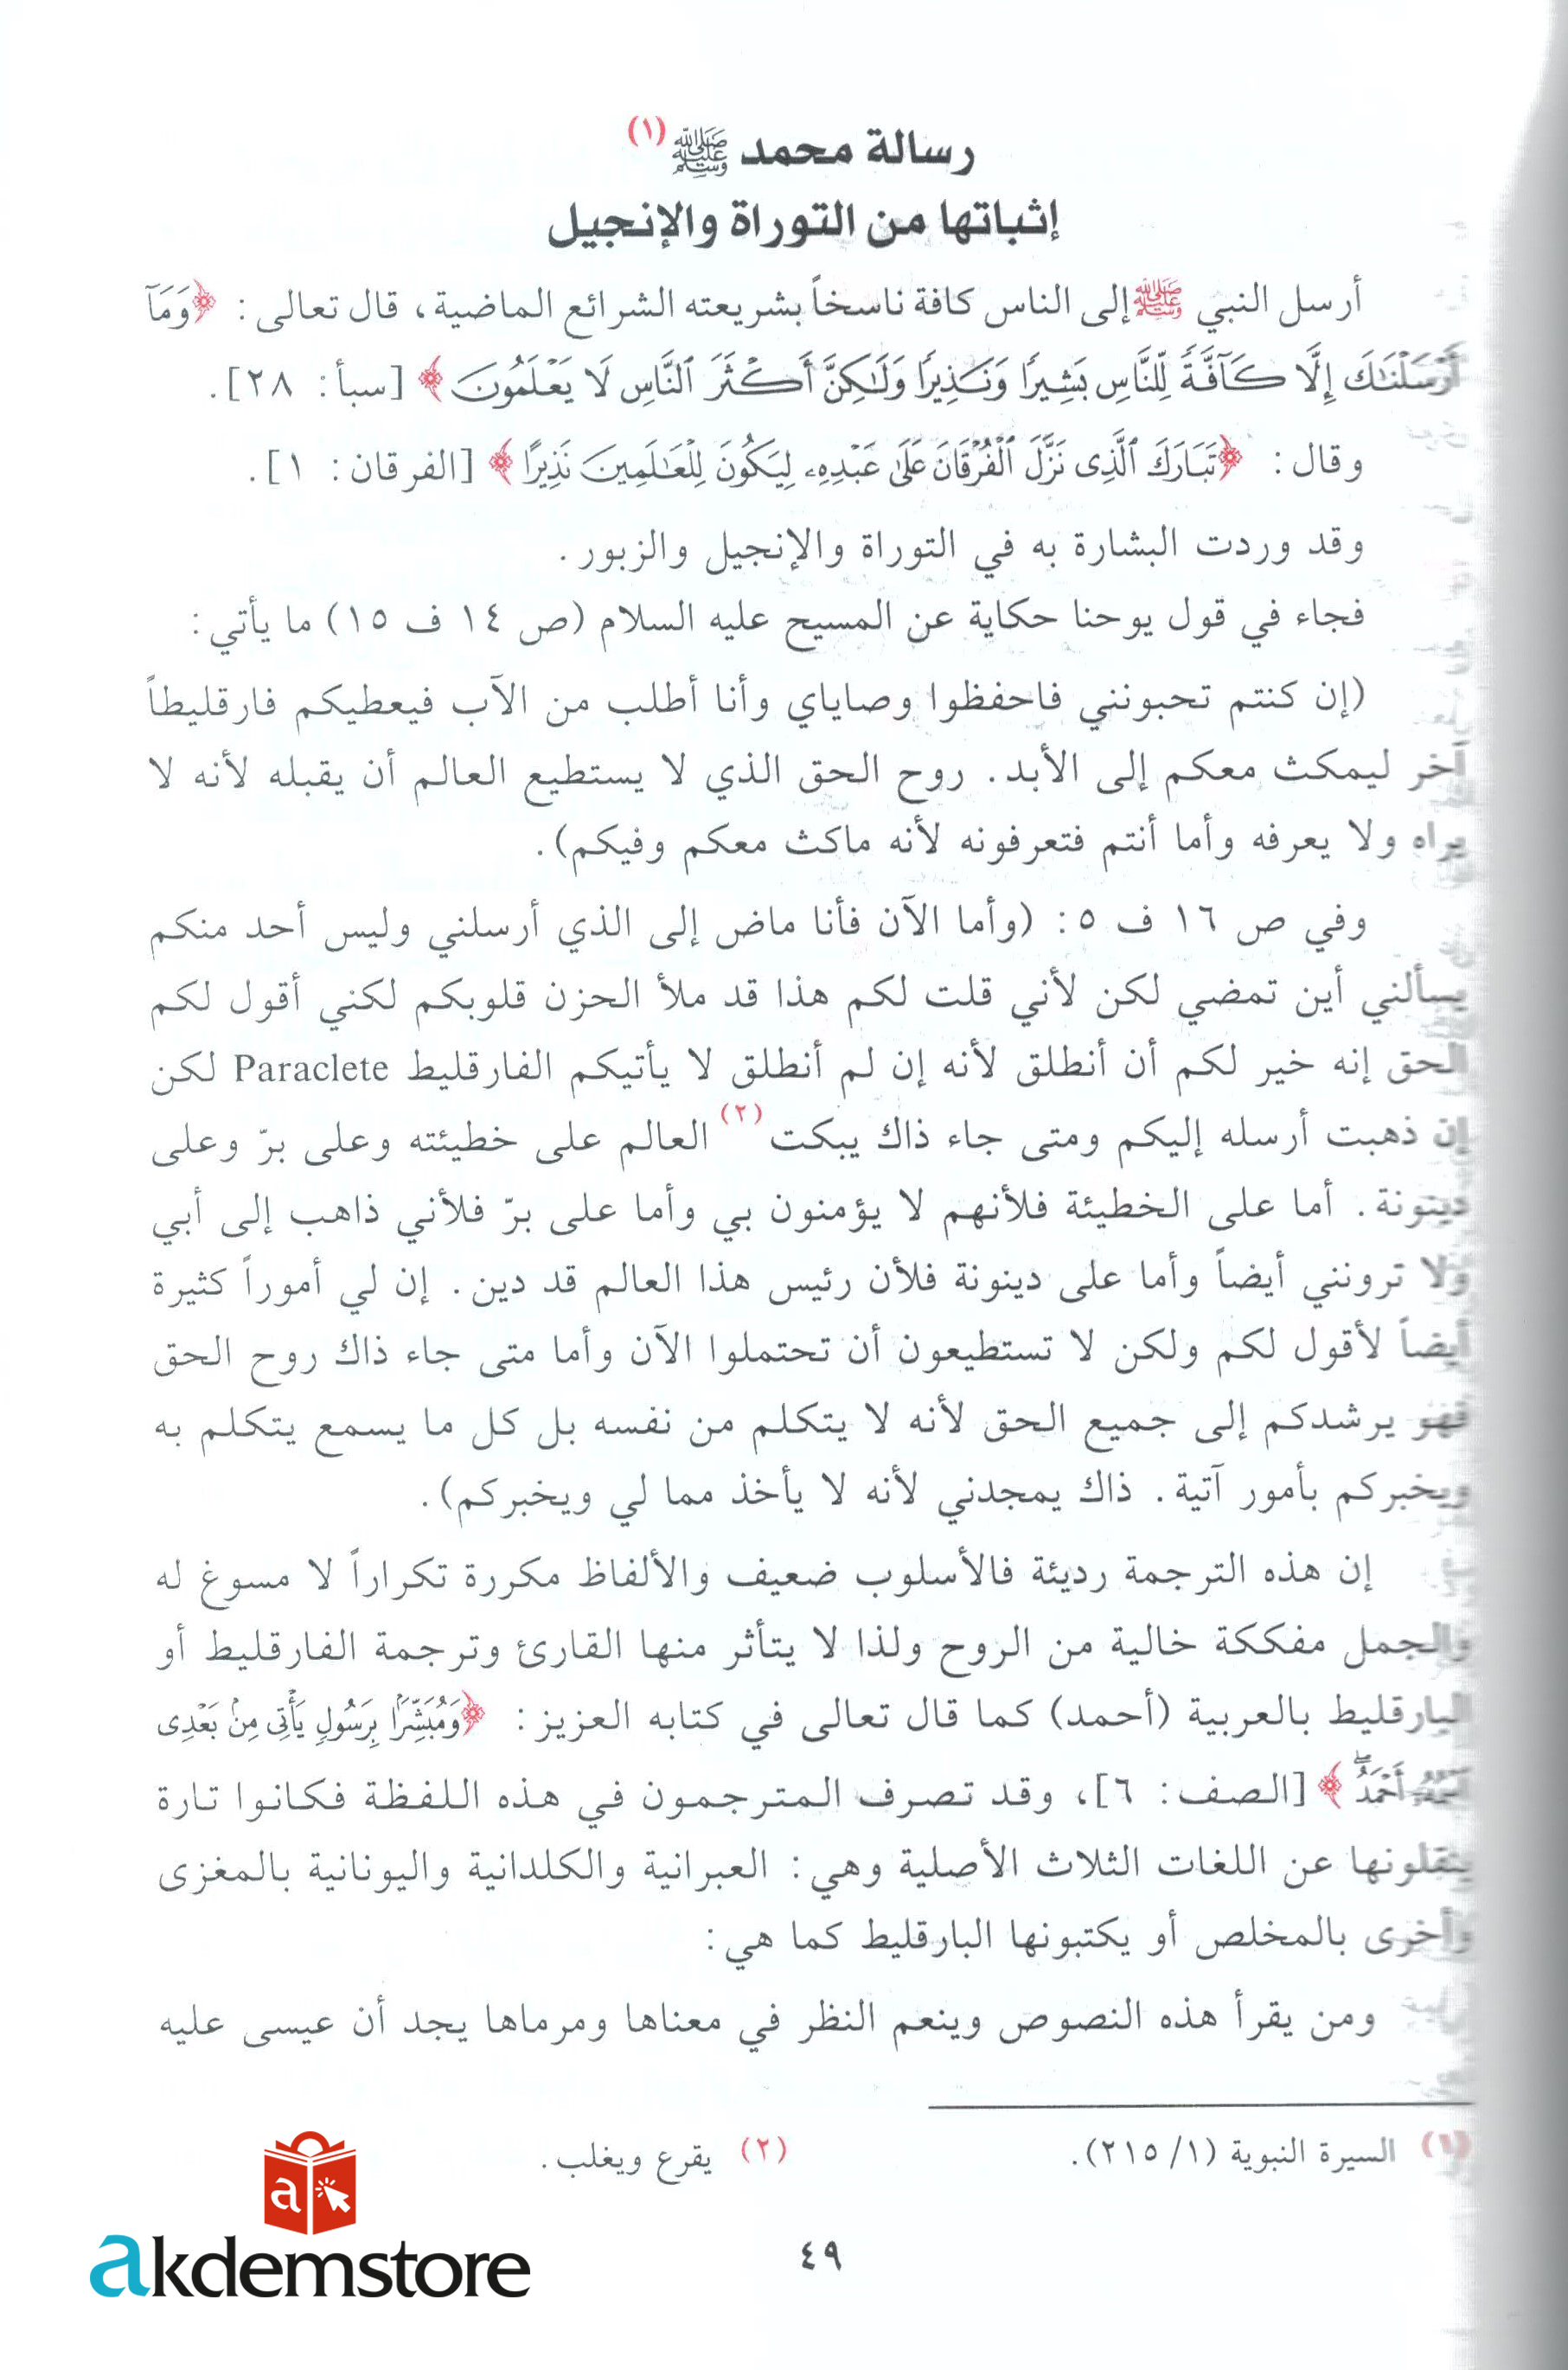 رسالة محمد ﷺ (١)
إثباتها من التوراة والإنجيل
أرسل النبي ﷺ إلى الناس كافة ناسخاً بشريعته الشرائع الماضية، قال تعالى: ﴿وَمَآ
أَرْسَلْنَٰكَ إِلَّا كَآفَّةً لِّلنَّاسِ بَشِيرًا وَنَذِيرًا وَلَٰكِنَّ أَكْثَرَ ٱلنَّاسِ لَا يَعْلَمُونَ﴾ [سبأ: ٢٨].
وقال: ﴿تَبَارَكَ ٱلَّذِى نَزَّلَ ٱلْفُرْقَانَ عَلَىٰ عَبْدِهِۦ لِيَكُونَ لِلْعَٰلَمِينَ نَذِيرًا﴾ [الفرقان: ١].
وقد وردت البشارة به في التوراة والإنجيل والزبور.
فجاء في قول يوحنا حكاية عن المسيح عليه السلام (ص ١٤ ف ١٥) ما يأتي:
(إن كنتم تحبونني فاحفظوا وصاياي وأنا أطلب من الآب فيعطيكم فارقليطاً
آخر ليمكث معكم إلى الأبد. روح الحق الذي لا يستطيع العالم أن يقبله لأنه لا
يراه ولا يعرفه وأما أنتم فتعرفونه لأنه ماكث معكم وفيكم).
وفي ص ١٦ ف ٥: (وأما الآن فأنا ماض إلى الذي أرسلني وليس أحد منكم
يسألني أين تمضي لكن لأني قلت لكم هذا قد ملأ الحزن قلوبكم لكني أقول لكم
الحق إنه خير لكم أن أنطلق لأنه إن لم أنطلق لا يأتيكم الفارقليط Paraclete لكن
إن ذهبت أرسله إليكم ومتى جاء ذاك يبكت (٢) العالم على خطيئته وعلى برّ وعلى
دينونة. أما على الخطيئة فلأنهم لا يؤمنون بي وأما على برّ فلأني ذاهب إلى أبي
ولا ترونني أيضاً وأما على دينونة فلأن رئيس هذا العالم قد دين. إن لي أموراً كثيرة
أيضاً لأقول لكم ولكن لا تستطيعون أن تحتملوا الآن وأما متى جاء ذاك روح الحق
فهو يرشدكم إلى جميع الحق لأنه لا يتكلم من نفسه بل كل ما يسمع يتكلم به
ويخبركم بأمور آتية. ذاك يمجدني لأنه لا يأخذ مما لي ويخبركم).
إن هذه الترجمة رديئة فالأسلوب ضعيف والألفاظ مكررة تكراراً لا مسوغ له
والجمل مفككة خالية من الروح ولذا لا يتأثر منها القارئ وترجمة الفارقليط أو
البارقليط بالعربية (أحمد) كما قال تعالى في كتابه العزيز: ﴿وَمُبَشِّرًۢا بِرَسُولٍ يَأْتِى مِنۢ بَعْدِى
ٱسْمُهُۥٓ أَحْمَدُۖ﴾ [الصف: ٦]، وقد تصرف المترجمون في هذه اللفظة فكانوا تارة
ينقلونها عن اللغات الثلاث الأصلية وهي: العبرانية والكلدانية واليونانية بالمغزى
وأخرى بالمخلص أو يكتبونها البارقليط كما هي:
ومن يقرأ هذه النصوص وينعم النظر في معناها ومرماها يجد أن عيسى عليه
(١) السيرة النبوية (١/ ٢١٥).
(٢) يقرع ويغلب.
٤٩
a
akdemstore